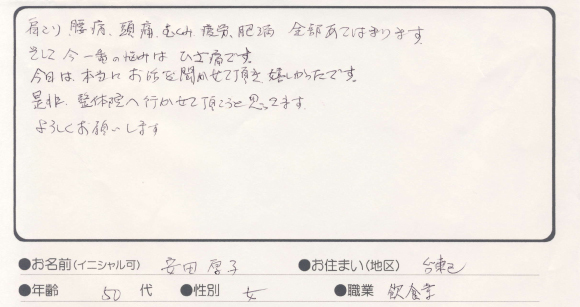 肩こり、腰痛、頭痛、むくみ、疲労、肥満 全部あてはまります。
そして今一番の悩みは ひざ痛です。
今日は、本当にお話を聞かせて頂き嬉しかったです。
是非、整体院へ行かせて頂こうと思ってます。
よろしくお願いします
●お名前(イニシャル可) 安田 ●お住まい(地区)
●年齢 50 代 ●性別 女 ●職業 飲食業